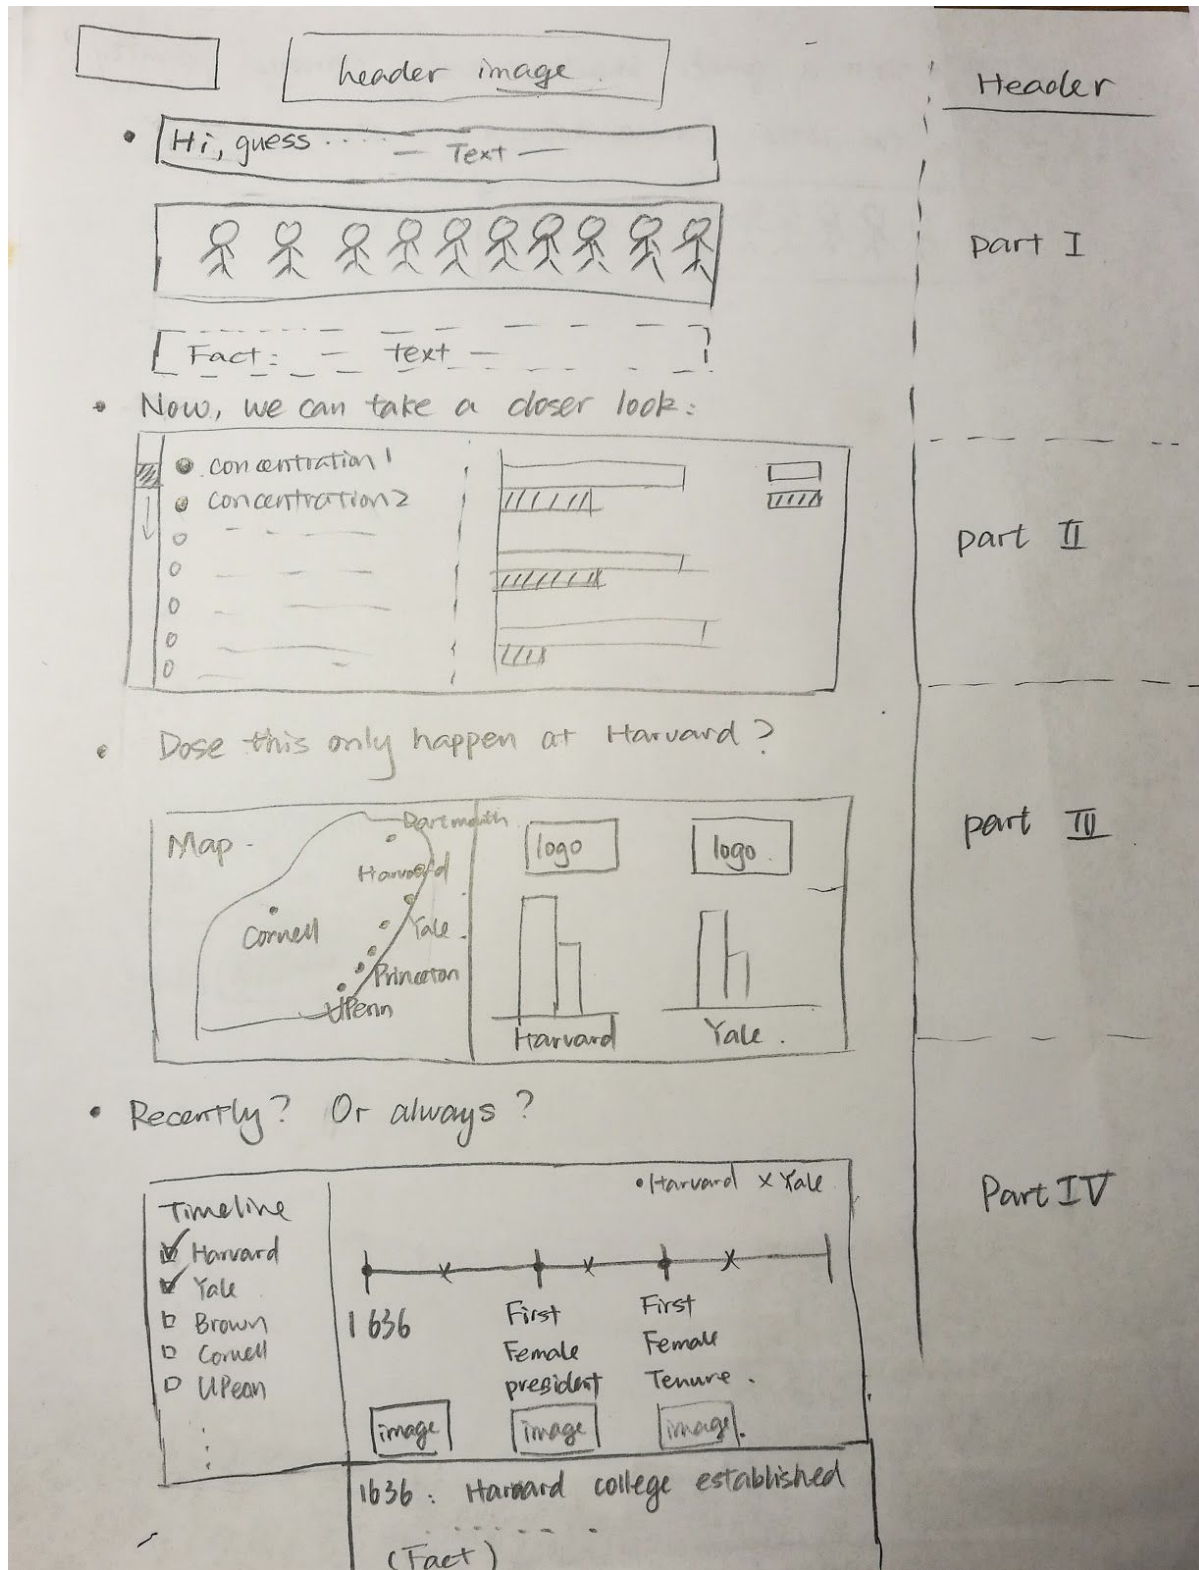 header image
Header
Hi, guess ..... — Text —
part I
Fact: — text —
Now, we can take a closer look:
concentration 1
concentration 2
part II
Dose this only happen at Harvard?
part III
Map
Dartmouth
Harvard
Cornell
Yale
Princeton
UPenn
logo
logo
Harvard
Yale
Recently? Or always?
Part IV
•Harvard × Yale
Timeline
Harvard
Yale
Brown
Cornell
UPenn
1636
First
Female
president
First
Female
Tenure
image
image
image
1636: Harvard college established
(Fact)